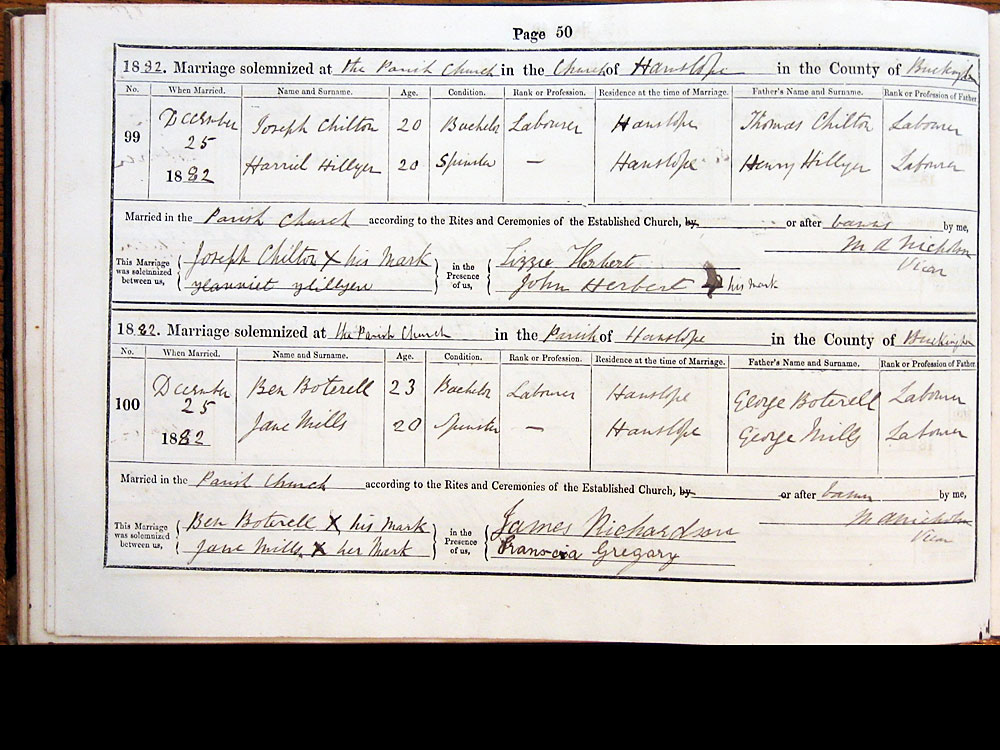 Page 50
1882. Marriage solemnized at the Parish Church in the Church of Hanslope in the County of Buckingham
No. When Married. Name and Surname. Age. Condition. Rank or Profession. Residence at the time of Marriage. Father's Name and Surname. Rank or Profession of Father.
99 December 25 1882 Joseph Chilton 20 Bachelor Labourer Hanslope Thomas Chilton Labourer
Harriet Hillyer 20 Spinster — Hanslope Henry Hillyer Labourer
Married in the Parish Church according to the Rites and Ceremonies of the Established Church, by or after banns by me,
M A Nicholson
Vicar
This Marriage was solemnized between us, Joseph Chilton X his Mark in the Presence of us, Lizzie Herbert
Harriet Hillyer John Herbert his mark
1882. Marriage solemnized at the Parish Church in the Parish of Hanslope in the County of Buckingham
No. When Married. Name and Surname. Age. Condition. Rank or Profession. Residence at the time of Marriage. Father's Name and Surname. Rank or Profession of Father.
100 December 25 1882 Ben Boterell 23 Bachelor Labourer Hanslope George Boterell Labourer
Jane Mills 20 Spinster — Hanslope George Mills Labourer
Married in the Parish Church according to the Rites and Ceremonies of the Established Church, by or after banns by me,
M A Nicholson
Vicar
This Marriage was solemnized between us, Ben Boterell X his Mark in the Presence of us, James Richardson
Jane Mills X her Mark Gregory